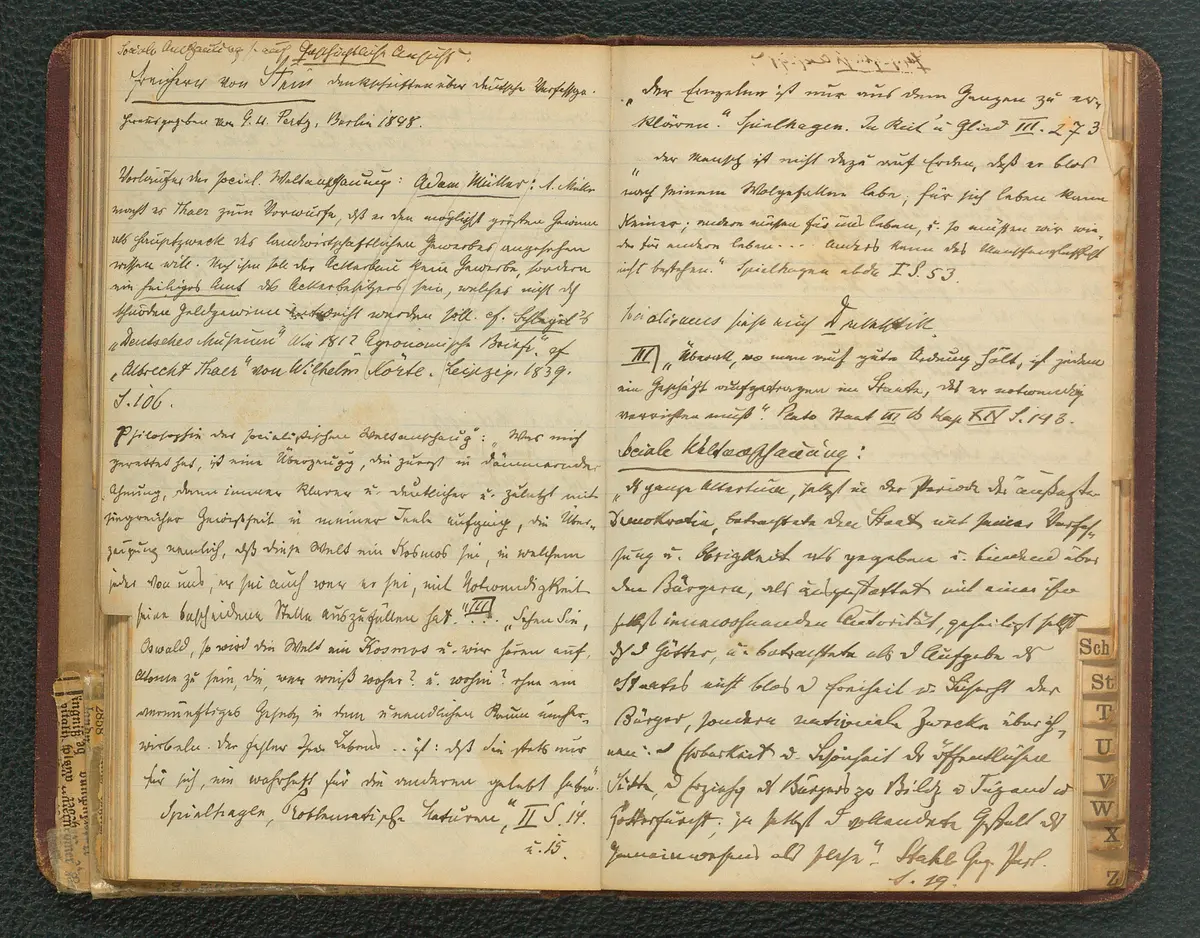 Sociale Anschauung s. auch Geschichtliche Ansicht.
Freiherr von Stein Denkschriften über deutsche Verfassgn.
herausgegeben von G. H. Pertz, Berlin 1848.
Vorläufer der social. Weltanschauung: Adam Müller: A. Müller
macht es Thaer zum Vorwurfe, dß er den möglichst grösten Gewinn
als Hauptzweck des landwirtschaftlichen Gewerbes angesehen
wissen will. Nach ihm soll der Ackerbau kein Gewerbe, sondern
ein heiliges Amt des Ackerbesitzers sein, welches nicht dch
schnöden Geldgewinn werden soll. cf. Schlegel's
„Deutsches Museum" 1812 Agronomische Briefe." cf
„Albrecht Thaer" von Wilhelm Körte. Leipzig. 1839.
S. 106.
Philosophie der socialistischen Weltanschaug: „Was mich
gerettet hat, ist eine Überzeugg, die zuerst in dämmernder
Ahnung, dann immer klarer u. deutlicher u. zuletzt mit
siegreicher Gewißheit in meiner Seele aufging, die Über-
zeugung nemlich, daß diese Welt ein Kosmos sei, in welchem
jeder von uns, er sei auch wer er sei, mit Notwendigkeit
seine bescheidene Stelle auszufüllen hat." III ... „Sehen Sie,
Oswald, so wird die Welt ein Kosmos u. wir hören auf,
Atome zu sein, die, wer weiß woher? u. wohin? ohne ein
vernünftiges Gesetz in dem unendlichen Raum umher-
wirbeln. Der Fehler Ihres Lebens .. ist: daß Sie stets nur
für sich, nie wahrhaft für die anderen gelebt haben."
Spielhagen, „Problematische Naturen," II S. 14.
u. 15.
„Der Einzelne ist nur aus dem Ganzen zu er-
klären." Spielhagen. In Reih u. Glied III. 273
„Der Mensch ist nicht dazu auf Erden, daß er blos
nach seinem Wolgefallen lebe; für sich leben kann
Keiner; andere müßen für uns leben, u. so müßen wir wie-
der für andere leben... Anders kann die Menschengesellschaft
nicht bestehen." Spielhagen ebda I S. 53.
Socialismus siehe auch
III „Überall, wo man auf gute Ordnung hält, ist jedem
ein Geschäft aufgetragen im Staate, das er notwendig
verrichten muß". Plato Staat III Kap. XIV S. 143.
Sociale Weltanschauung:
„Ds ganze Altertum, selbst in der Periode der äußersten
Demokratie, betrachtete den Staat mit seiner Verfas-
sung u. Obrigkeit als gegeben u. bindend über
den Bürgern, als ausgestattet mit einer ihm
selbst innewohnenden Autorität, geheiligt selbst
dch d Götter, u. betrachtete als d Aufgabe des
Staates nicht blos d Freiheit u. der
Bürger, sondern nationale Zwecke über ih-
nen: d Ehrbarkeit u. Schönheit der öffentlichen
Sitte, d Erziehg des Bürgers zu Bildg u Tugend u
Götterfurcht; ja selbst d vollendete Gestalt des
Gemeinwesens als solche". Stahl Geg. Part.
S. 19.
Sch
St
T
U
V
W
X
Z